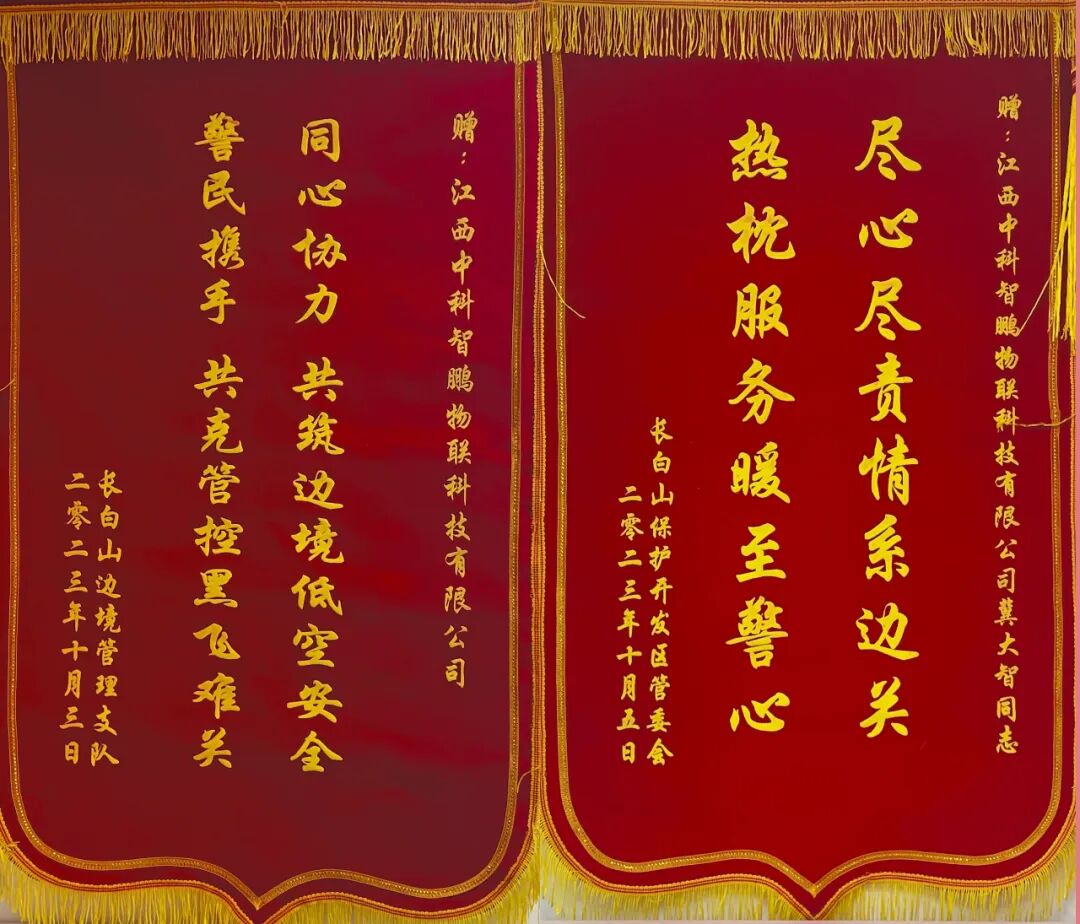 赠：江西中科智鹏物联科技有限公司
同心协力 共筑边境低空安全
警民携手 共克管控黑飞难关
长白山边境管理支队
二零二三年十月三日
赠：江西中科智鹏物联科技有限公司冀大智同志
尽心尽责情系边关
热枕服务暖至警心
长白山保护开发区管委会
二零二三年十月五日